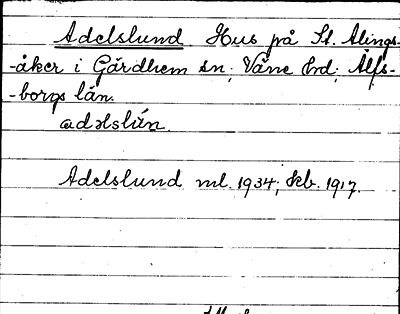 Adelslund Hus på St. Alings-
-åker i Gärdhem sn; Väne hd; Älfs-
-borgs län.
adəlslún.
Adelslund ml. 1934; Skb. 1917.